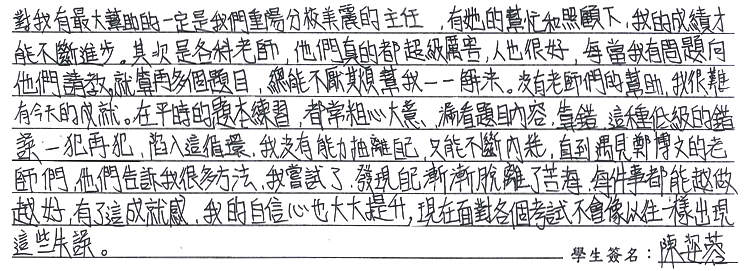 對我有最大幫助的一定是我們重陽分校美麗的主任,有她的幫忙和照顧下,我的成績才
能不斷進步。其次是各科老師,他們真的都超級厲害,人也很好,每當我有問題向
他們請教,就算再多個題目,總能不厭其煩幫我一一解決。沒有老師們的幫助,我很難
有今天的成就。在平時的題本練習,都常粗心大意、漏看題目內容,靠錯,這種低級的錯
誤一犯再犯,陷入這個循環,我沒有能力抽離自己,只能不斷內卷,直到遇見鄭博文的老
師們,他們告訴我很多方法,我嘗試了,發現自己漸漸脫離了苦海,每件事都能越做
越好,有了這成就感,我的自信心也大大提升,現在面對各個考試不會像以往一樣出現
這些失誤。
學生簽名:陳 蓉